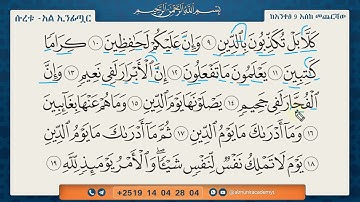 بِسْمِ اللَّهِ الرَّحْمَٰنِ الرَّحِيمِ
ሱረቱ -አል ኢንፊጧር
ከአንቀፅ 9 እስከ መጨረሻው
كَلَّا بَلْ تُكَذِّبُونَ بِالدِّينِ ٩ وَإِنَّ عَلَيْكُمْ لَحَافِظِينَ ١٠ كِرَامًا
كَاتِبِينَ ١١ يَعْلَمُونَ مَا تَفْعَلُونَ ١٢ إِنَّ الْأَبْرَارَ لَفِي نَعِيمٍ ١٣ وَإِنَّ
الْفُجَّارَ لَفِي جَحِيمٍ ١٤ يَصْلَوْنَهَا يَوْمَ الدِّينِ ١٥ وَمَا هُمْ عَنْهَا بِغَائِبِينَ
١٦ وَمَا أَدْرَاكَ مَا يَوْمُ الدِّينِ ١٧ ثُمَّ مَا أَدْرَاكَ مَا يَوْمُ الدِّينِ
١٨ يَوْمَ لَا تَمْلِكُ نَفْسٌ لِنَفْسٍ شَيْئًا ۖ وَالْأَمْرُ يَوْمَئِذٍ لِلَّهِ ١٩
+2519 14 04 28 04